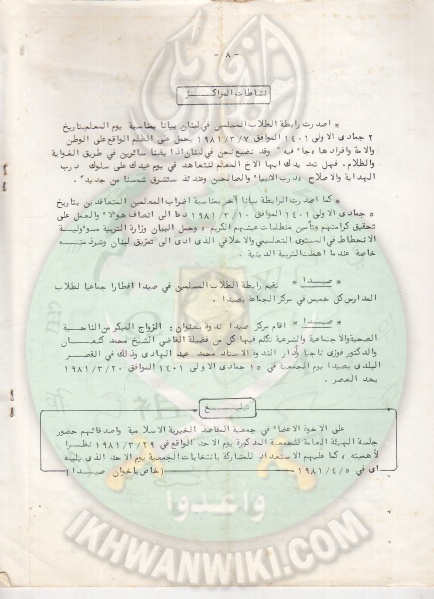 - ٨ -
نشاطات المراكز
* اصدرت رابطة الطلاب المسلمين في لبنان بيانا بمناسبة يوم المعلم بتاريخ
٢ جمادى الاولى ١٤٠١ الموافق ١٩٨١/٣/٧ حمل على الظلم الواقع على الوطن
والامة وافرادها جاء فيه " وقد نضيع نحن في لبنان اذا بقينا سائرين في طريق الغواية
والظلام. فهل تمد يدك ايها الاخ المعلم لنتعاهد في يوم عيدك على سلوك درب
الهداية والاصلاح درب الانبياء والصالحين وعندئذ ستشرق شمسنا من جديد".
* كما اصدرت الرابطة بيانا آخر بمناسبة اضراب المعلمين المتعاقدين بتاريخ
٥ جمادى الاولى ١٤٠١ الموافق ١٩٨١/٣/١٠ دعا الى انصاف هؤلاء والعمل على
تحقيق كرامتهم وتأمين متطلبات عيشهم الكريم، وحمل البيان وزارة التربية مسؤولية
الانحطاط في المستوى التعليمي والاخلاقي الذي ادى الى تمزيق لبنان وشرذمته
خاصة عندما اهملت التربية الدينية.
* صيدا * تقيم رابطة الطلاب المسلمين في صيدا افطارا جماعيا لطلاب
المدارس كل خميس في مركز الجماعة بصيدا.
* صيدا * اقام مركز صيدا ندوة بعنوان: الزواج المبكر من الناحية
الصحية والاجتماعية والشرعية تكلم فيها كل من فضيلة القاضي الشيخ محمد كنعان
والدكتور فوزي ناجيا وأدار الندوة الاستاذ محمد عبد الهادي وذلك في القصر
البلدي بصيدا يوم الجمعة في ١٥ جمادى الاولى ١٤٠١ الموافق ١٩٨١/٣/٢٠
بعد العصر.
تبليغ
على الاخوة الاعضاء في جمعية المقاصد الخيرية الاسلامية واصدقائهم حضور
جلسة الهيئة العامة للجمعية المذكورة يوم الاحد الواقع في ١٩٨١/٣/٢٩ نظرا
لأهميته، كما عليهم الاستعداد للمشاركة بانتخابات الجمعية يوم الاحد الذي يليه
اي في ١٩٨١/٤/٥ (خاص باخوان صيدا)
واعدوا
IKHWANWIKI.COM